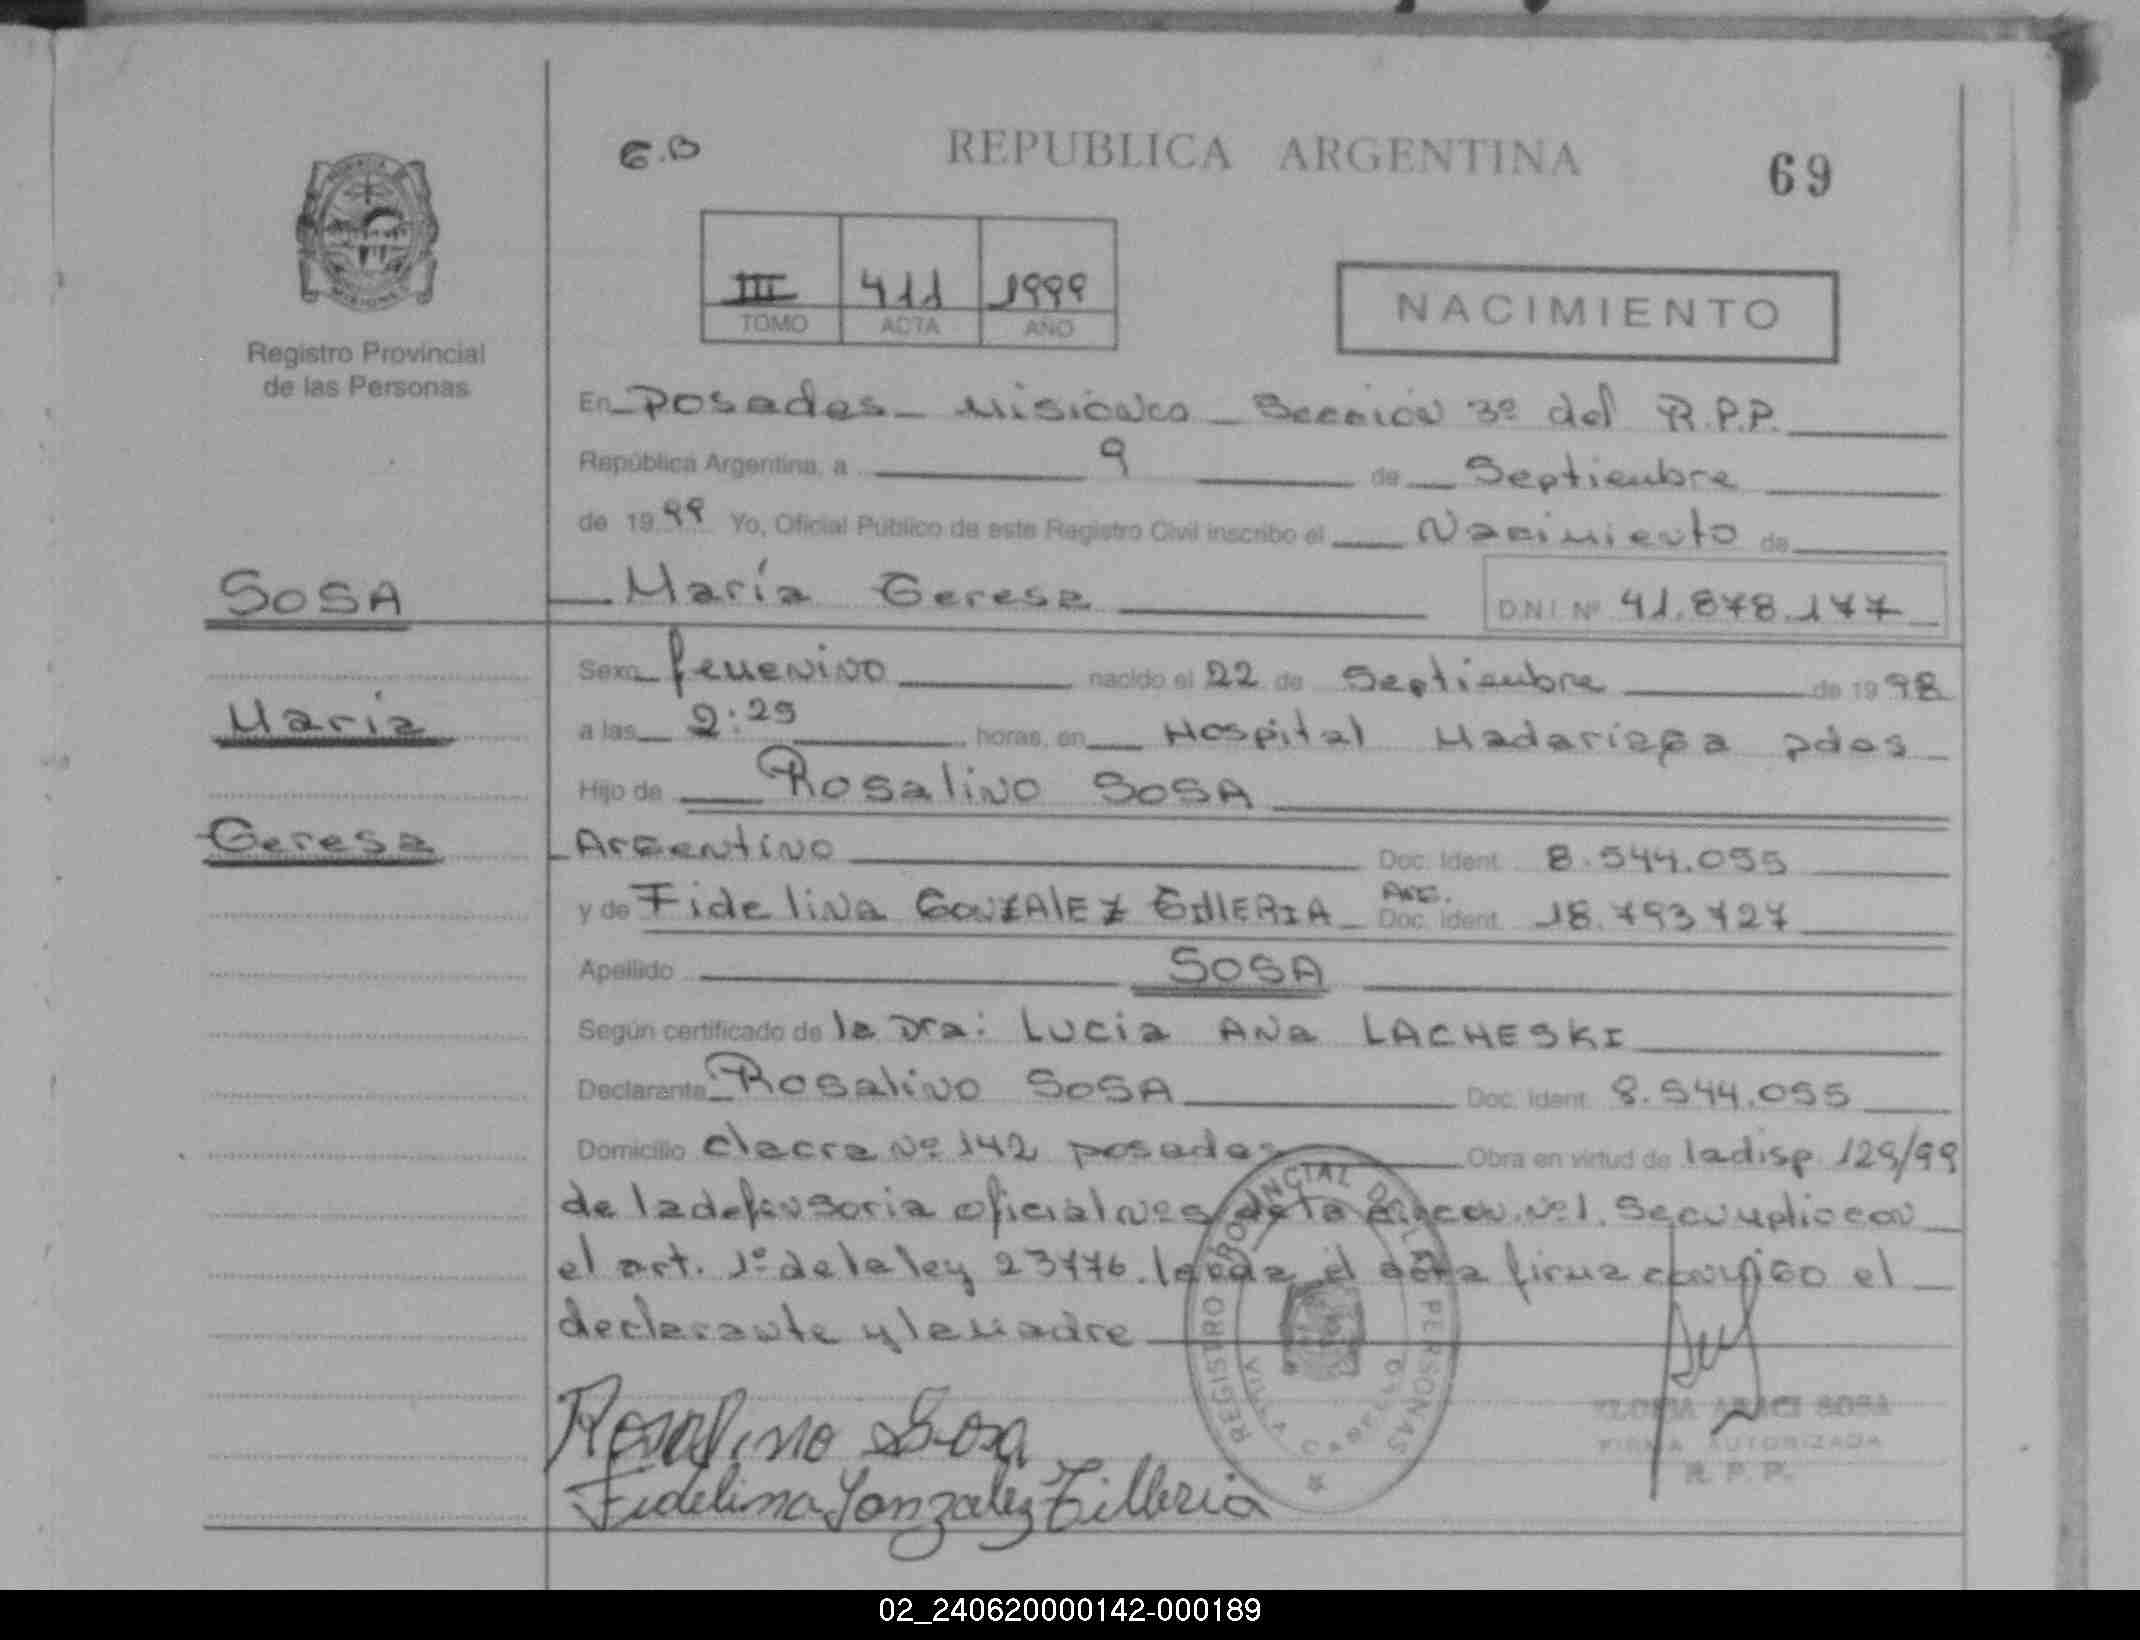 E.B
REPUBLICA ARGENTINA
69
III 411 1999
TOMO ACTA AÑO
NACIMIENTO
Registro Provincial
de las Personas
En Posadas - Misiones - Sección 3º del R.P.P.
República Argentina, a 9 de Septiembre
de 1999 Yo, Oficial Público de este Registro Civil inscribo el Nacimiento de
SOSA
María Teresa D.N.I. Nº 41.878.177
Sexo femenino nacido el 22 de Septiembre de 1998
María
a las 2:25 horas, en Hospital Madariaga pdas
Hijo de Rosalino SOSA
Teresa
Argentino Doc. Ident. 8.544.055
y de Fidelina GONZALEZ TILLERIA ARG. Doc. Ident. 18.793727
Apellido SOSA
Según certificado de la Dra: Lucia Ana LACHESKI
Declarante Rosalino SOSA Doc. Ident. 8.544.055
Domicilio chacra Nº 142 posadas Obra en virtud de la disp 129/99
de la defensoria oficial Nº 1. Se cumplio con
el art. 1º de la ley 23776. leida el acta firma conmigo el
declarante y la madre
Rosalino Sosa
Fidelina Gonzalez Tilleria
REGISTRO PROVINCIAL DE LAS PERSONAS
VILLA CABELLO
ARACI SOSA
FIRMA AUTORIZADA
R. P. P.
02_240620000142-000189